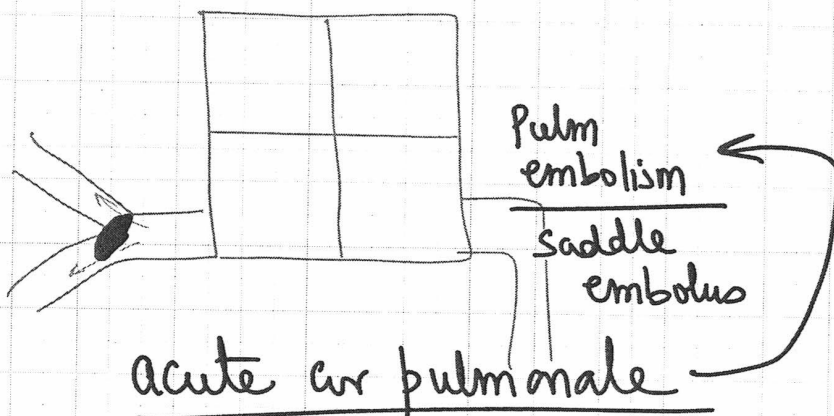 Pulm
embolism
saddle
embolus
acute cor pulmonale